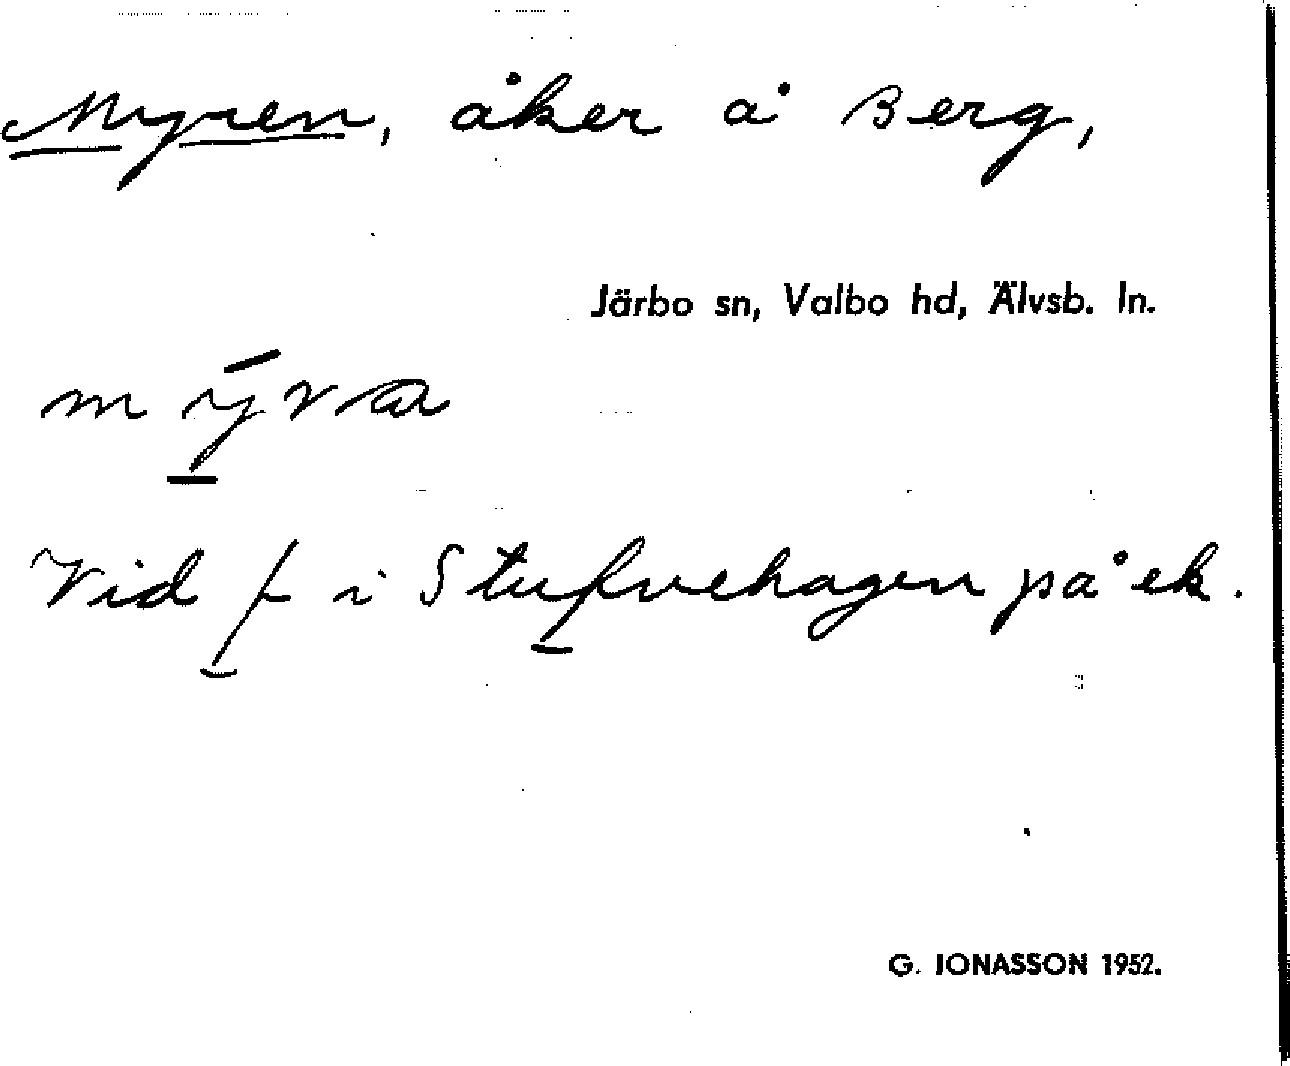 Myren, åker å Berg,
Järbo sn, Valbo hd, Älvsb. ln.
mȳva
Vid f i Stufvehagen på ek.
G. JONASSON 1952.